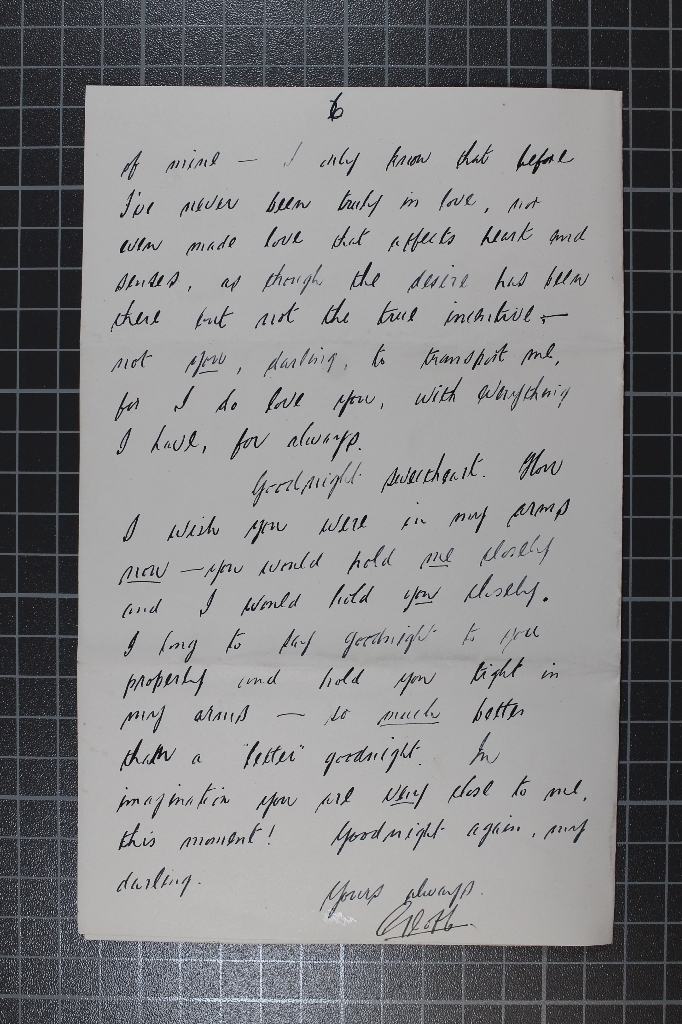 6
of mine — I only know that before
I've never been truly in love, not
even made love that affects heart and
senses, as though the desire has been
there but not the true incentive —
not you, darling, to transport me,
for I do love you, with everything
I have, for always.
Goodnight sweetheart. How
I wish you were in my arms
now — you would hold me closely
and I would hold you closely.
I long to say goodnight to you
properly and hold you tight in
my arms — so much better
than a "letter" goodnight. In
imagination you are very close to me,
this moment! Goodnight again, my
darling.
Yours always.
Geoff.